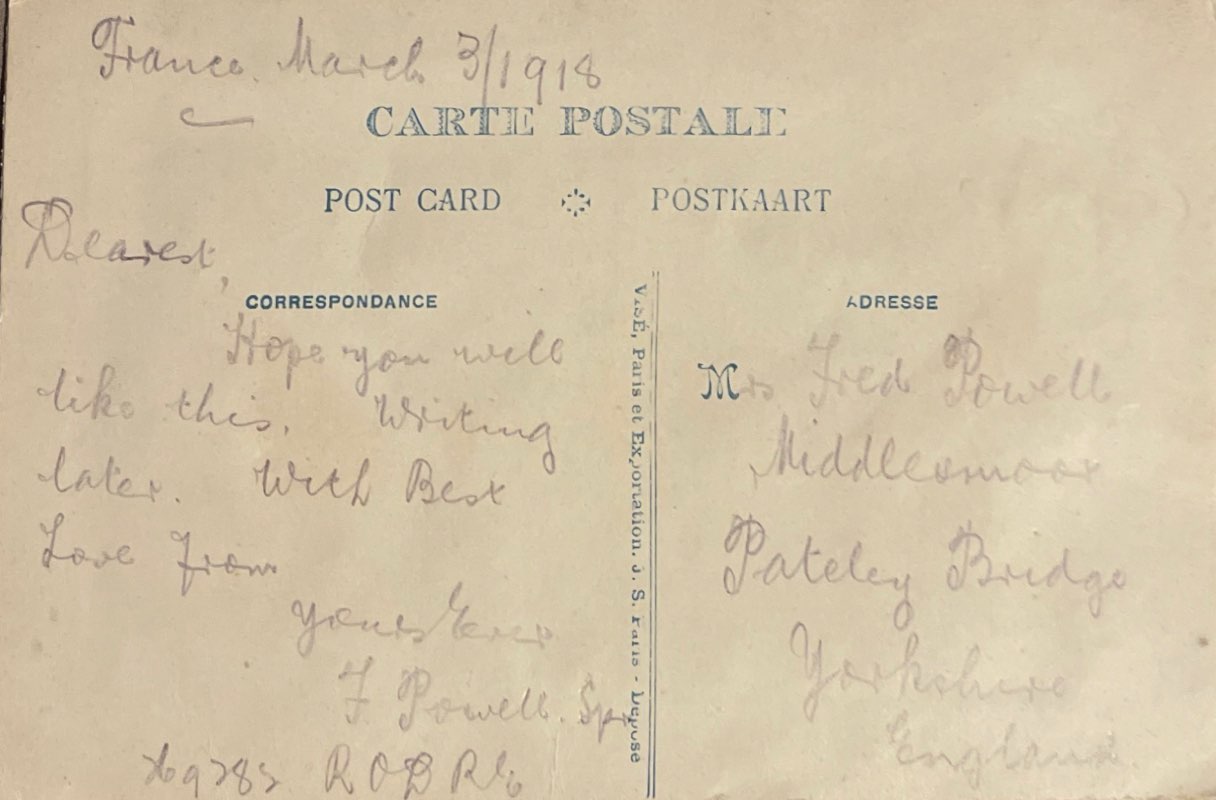 France. March 3/1918
CARTE POSTALE
POST CARD POSTKAART
Dearest,
CORRESPONDANCE
Hope you will
like this. Writing
later. With Best
Love From
Yours Ever
F Powell. Spr
R O D R E
VISÉ, Paris et Exportation. J. S. Paris - Déposé
ADRESSE
Mrs Fred Powell
Middlesmoor
Pateley Bridge
Yorkshire
England.